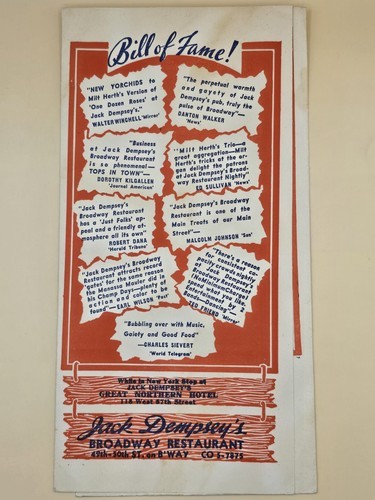 Bill of Fame!
"NEW YORCHIDS to
Milt Herth's Version of
'One Dozen Roses' at
Jack Dempsey's."
WALTER WINCHELL "Mirror"
"The perpetual warmth
and gayety of Jack
Dempsey's pub, truly the
pulse of Broadway"—
DANTON WALKER
"News"
"Business
at Jack Dempsey's
Broadway Restaurant
is so phenomenal—
TOPS IN TOWN"—
DOROTHY KILGALLEN
"Journal American"
"Milt Herth's Trio—a
great aggregation—Milt
Herth's tricks at the or-
gan delight the patrons
at Jack Dempsey's Broad-
way Restaurant Nightly"
ED SULLIVAN "News"
"Jack Dempsey's
Broadway Restaurant
has a 'Just Folks' ap-
peal and a friendly at-
mosphere all its own"
ROBERT DANA
"Herald Tribune"
"Jack Dempsey's
Broadway Restaurant
Restaurant is one of the
Main Treats of our Main
Street"—
MALCOLM JOHNSON "Sun"
"Jack Dempsey's Broadway
Restaurant attracts record
'gates' for the same reason
the Manassa Mauler did in
his Champ Days—plenty of
action and color to be
found"—EARL WILSON "Post"
"There's a reason
for consistent ca-
pacity crowds nightly
at Jack Dempsey's
Broadway Restaurant
(No Minimum Charge)
spend what you like,
Entertainment by 2
Bands—Dancing"—
TED FRIEND "Mirror"
"Bubbling over with Music,
Gaiety and Good Food"
—CHARLES SIEVERT
"World Telegram"
While in New York Stop at
JACK DEMPSEY'S
GREAT NORTHERN HOTEL
118 West 57th Street
Jack Dempsey's
BROADWAY RESTAURANT
49th-50th ST. on B'WAY CO 5-7875